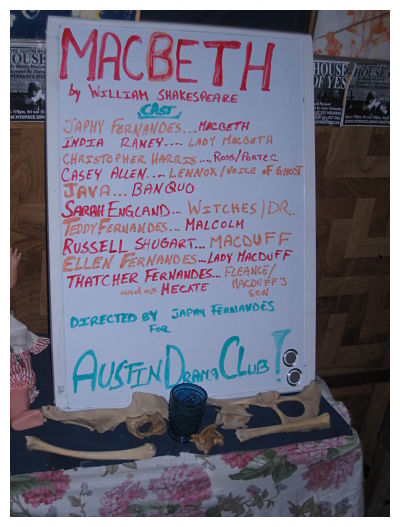 MACBETH
by WILLIAM SHAKESPEARE
CAST
JAPHY FERNANDES... MACBETH
INDIA RANEY.... LADY MACBETH
CHRISTOPHER HARRIS... ROSS/PORTER
CASEY ALLEN.... LENNOX/VOICE OF GHOST
JAVA... BANQUO
SARAH ENGLAND... WITCHES/DR.
TEDDY FERNANDES... MALCOLM
RUSSELL SHUGART... MACDUFF
ELLEN FERNANDES... LADY MACDUFF
THATCHER FERNANDES... FLEANCE/
MACDUFF'S
and as HECATE
SON
DIRECTED BY JAPHY FERNANDES
FOR
AUSTIN DRAMA CLUB!
HOUSE
HOUSE
OF YES
HOUSE